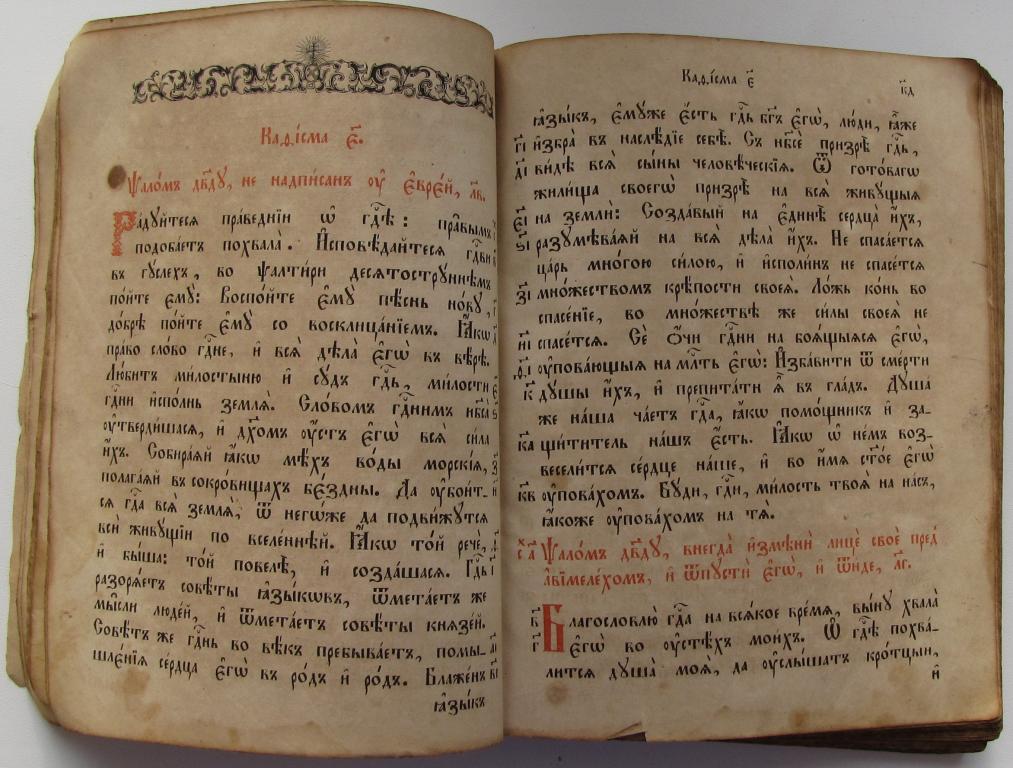 Каѳі́сма є҃.
Ѱало́мъ дв҃дꙋ, не надпи́санъ ᲂу҆ є҆врє́й, л҃в.
Ра́дꙋйтеся пра́веднїи ѡ҆ гд҇ѣ: пра̑вымъ
подоба́етъ похвала̀. И҆сповѣ́дайтеся гд҇ви
въ гꙋ́слехъ, во ѱалти́ри десятострꙋ́ннѣмъ
по́йте є҆мꙋ̀: Воспо́йте є҆мꙋ̀ пѣ́снь но́вꙋ,
до́брѣ по́йте є҆мꙋ̀ со восклица́нїемъ. Ꙗ҆́кѡ
пра́во сло́во гд҇не, и҆ всѧ̀ дѣла̀ є҆гѡ̀ въ вѣ́рѣ.
Лю́битъ ми́лостыню и҆ сꙋ́дъ гд҇ь, ми́лости
гд҇ни и҆спо́лнь землѧ̀. Сло́вомъ гд҇нимъ нб҃са̀
ᲂу҆тверди́шася, и҆ дх҃омъ ᲂу҆́стъ є҆гѡ̀ всѧ̀ си́ла
и҆́хъ. Собира́яй ꙗ҆́кѡ мѣ́хъ во́ды морскі́я,
полага́яй въ сокро́вищахъ бє́здны. Да ᲂу҆бои́т-
ся гд҇а всѧ̀ землѧ̀, ѿ негѡ́же да подви́жꙋтся
всѝ живꙋ́щїи по вселе́ннѣй. Ꙗ҆́кѡ то́й речѐ,
и҆ бы́ша: то́й повелѣ̀, и҆ созда́шася. Гд҇ь
разоря́етъ совѣ́ты ꙗ҆зы́кѡвъ, ѿмета́етъ же
мы́сли люде́й, и҆ ѿмета́етъ совѣ́ты князе́й.
Совѣ́тъ же гд҇нь во вѣ́къ пребыва́етъ, помы-
шлє́нїя се́рдца є҆гѡ̀ въ ро́дъ и҆ ро́дъ. Блаже́нъ
ꙗ҆зы́къ
Каѳі́сма є҃
к҃д
ꙗ҆зы́къ, є҆мꙋ́же є҆́сть гд҇ь бг҃ъ є҆гѡ̀, лю́ди, ꙗ҆̀же
г҃і и҆збра̀ въ наслѣ́дїе себѣ̀. Съ нб҃сѐ призрѣ̀ гд҇ь,
д҃і ви́дѣ всѧ̀ сы́ны человѣ́ческїя. Ѿ гото́вагѡ
жили́ща своегѡ̀ призрѣ̀ на всѧ̀ живꙋ́щыя
є҃і на землѝ: Созда́вый на є҆ди́нѣ сердца̀ и҆́хъ,
ѕ҃і разꙋмѣва́яй на всѧ̀ дѣла̀ и҆́хъ. Не спаса́ется
ца́рь мно́гою си́лою, и҆ и҆споли́нъ не спасе́тся
з҃і мно́жествомъ крѣ́пости своеѧ̀. Ло́жь ко́нь во
спасе́нїе, во мно́жествѣ же си́лы своеѧ̀ не
и҃і спасе́тся. Сѐ ѻ҆́чи гд҇ни на боя́щыяся є҆гѡ̀,
ѳ҃і ᲂу҆пова́ющыя на мл҇ть є҆гѡ̀: И҆зба́вити ѿ сме́рти
к҃ дꙋ́шы и҆́хъ, и҆ препита́ти ѧ҆̀ въ гла́дъ. Дꙋша́
же на́ша ча́етъ гд҇а, ꙗ҆́кѡ помо́щникъ и҆ за-
к҃а щи́титель на́шъ є҆́сть. Ꙗ҆́кѡ ѡ҆ не́мъ воз-
весели́тся се́рдце на́ше, и҆ во и҆́мя ст҃о́е є҆гѡ̀
к҃в ᲂу҆пова́хомъ. Бꙋ́ди, гд҇и, ми́лость твоѧ̀ на на́съ,
ꙗ҆́коже ᲂу҆пова́хомъ на тѧ̀.
Ѱало́мъ дв҃дꙋ, внегда̀ и҆змѣнѝ лицѐ своѐ пред
а҆вімеле́хомъ, и҆ ѿпꙋстѝ є҆гѡ̀, и҆ ѿи́де, л҃г.
в҃ Благословлю̀ гд҇а на вся́кое вре́мя, вы́нꙋ хвала̀
г҃ є҆гѡ̀ во ᲂу҆стѣ́хъ мои́хъ. Ѡ҆ гд҇ѣ похва́-
лится дꙋша̀ моѧ̀, да ᲂу҆слы́шатъ кро́тцыи,
и҆